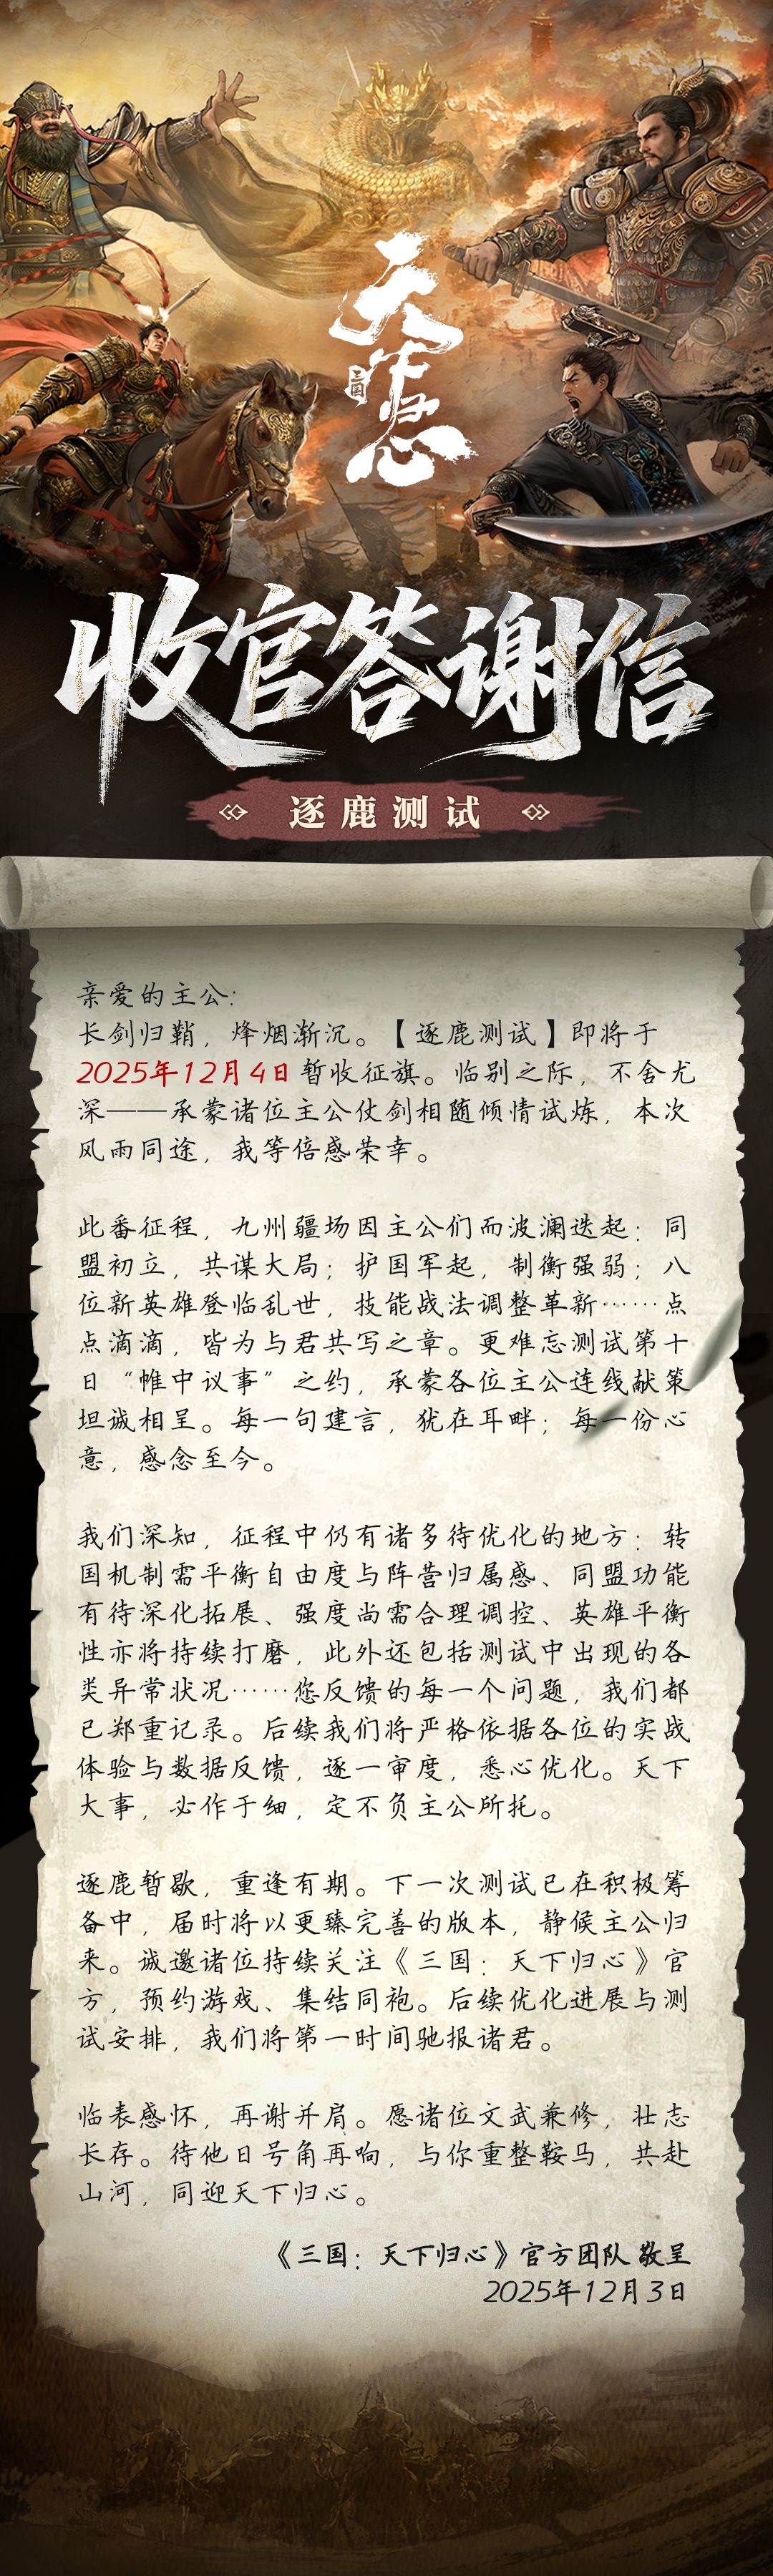 天下归心
三国
收官答谢信
逐鹿测试
亲爱的主公：
长剑归鞘，烽烟渐沉。【逐鹿测试】即将于
2025年12月4日暂收征旗。临别之际，不舍尤
深——承蒙诸位主公仗剑相随倾情试炼，本次
风雨同途，我等倍感荣幸。
此番征程，九州疆场因主公们而波澜迭起：同
盟初立，共谋大局；护国军起，制衡强弱；八
位新英雄登临乱世，技能战法调整革新……点
点滴滴，皆为与君共写之章。更难忘测试第十
日“帷中议事”之约，承蒙各位主公连线献策
坦诚相呈。每一句建言，犹在耳畔；每一份心
意，感念至今。
我们深知，征程中仍有诸多待优化的地方：转
国机制需平衡自由度与阵营归属感、同盟功能
有待深化拓展、强度尚需合理调控、英雄平衡
性亦将持续打磨，此外还包括测试中出现的各
类异常状况……您反馈的每一个问题，我们都
已郑重记录。后续我们将严格依据各位的实战
体验与数据反馈，逐一审度，悉心优化。天下
大事，必作于细，定不负主公所托。
逐鹿暂歇，重逢有期。下一次测试已在积极筹
备中，届时将以更臻完善的版本，静候主公归
来。诚邀诸位持续关注《三国：天下归心》官
方，预约游戏、集结同袍。后续优化进展与测
试安排，我们将第一时间驰报诸君。
临表感怀，再谢并肩。愿诸位文武兼修，壮志
长存。待他日号角再响，与你重整鞍马，共赴
山河，同迎天下归心。
《三国：天下归心》官方团队 敬呈
2025年12月3日